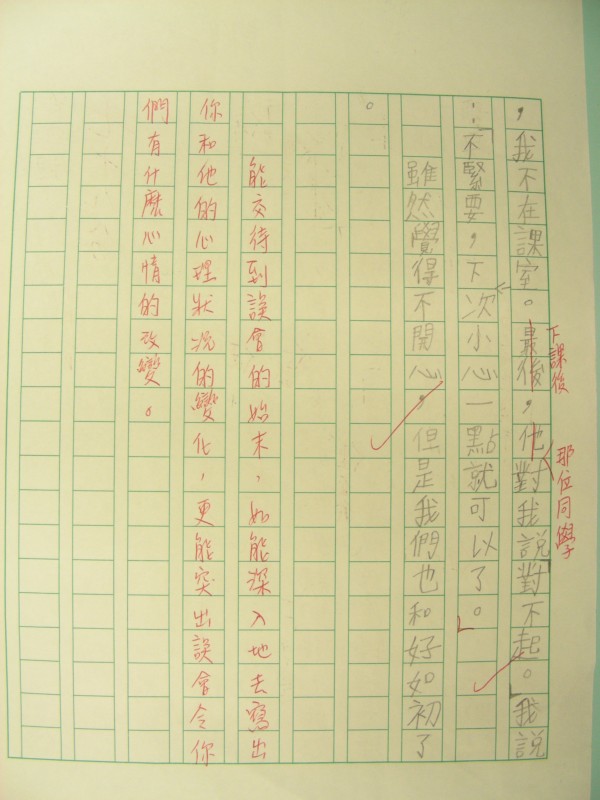 ，我不在課室。最後，他對我說對不起。我說
下課後
那位同學
：「不緊要，下次小心一點就可以了。」
雖然覺得不開心，但是我們也和好如初了
。
能交待到誤會的始末，如能深入地去寫出
你和他的心理狀況的變化，更能突出誤會令你
們有什麼心情的改變。